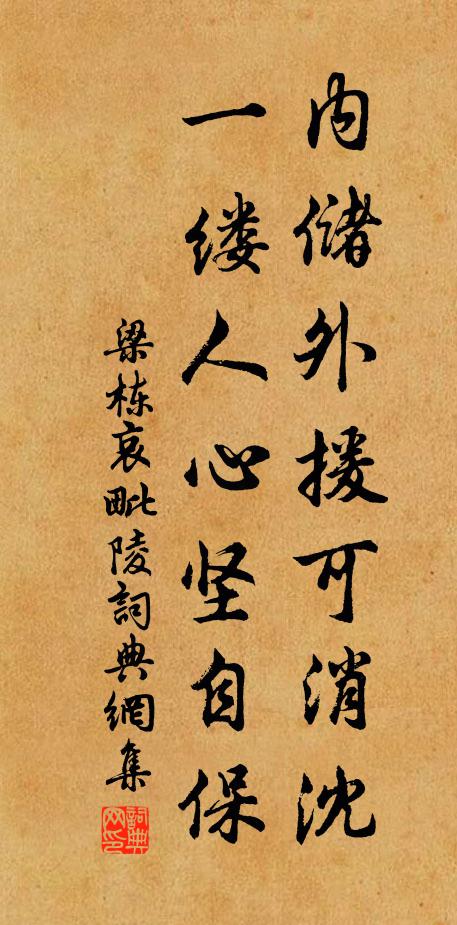 内储外援可消沈
一缕人心坚自保
梁栋哀毗陵詞典網集
詞典网印